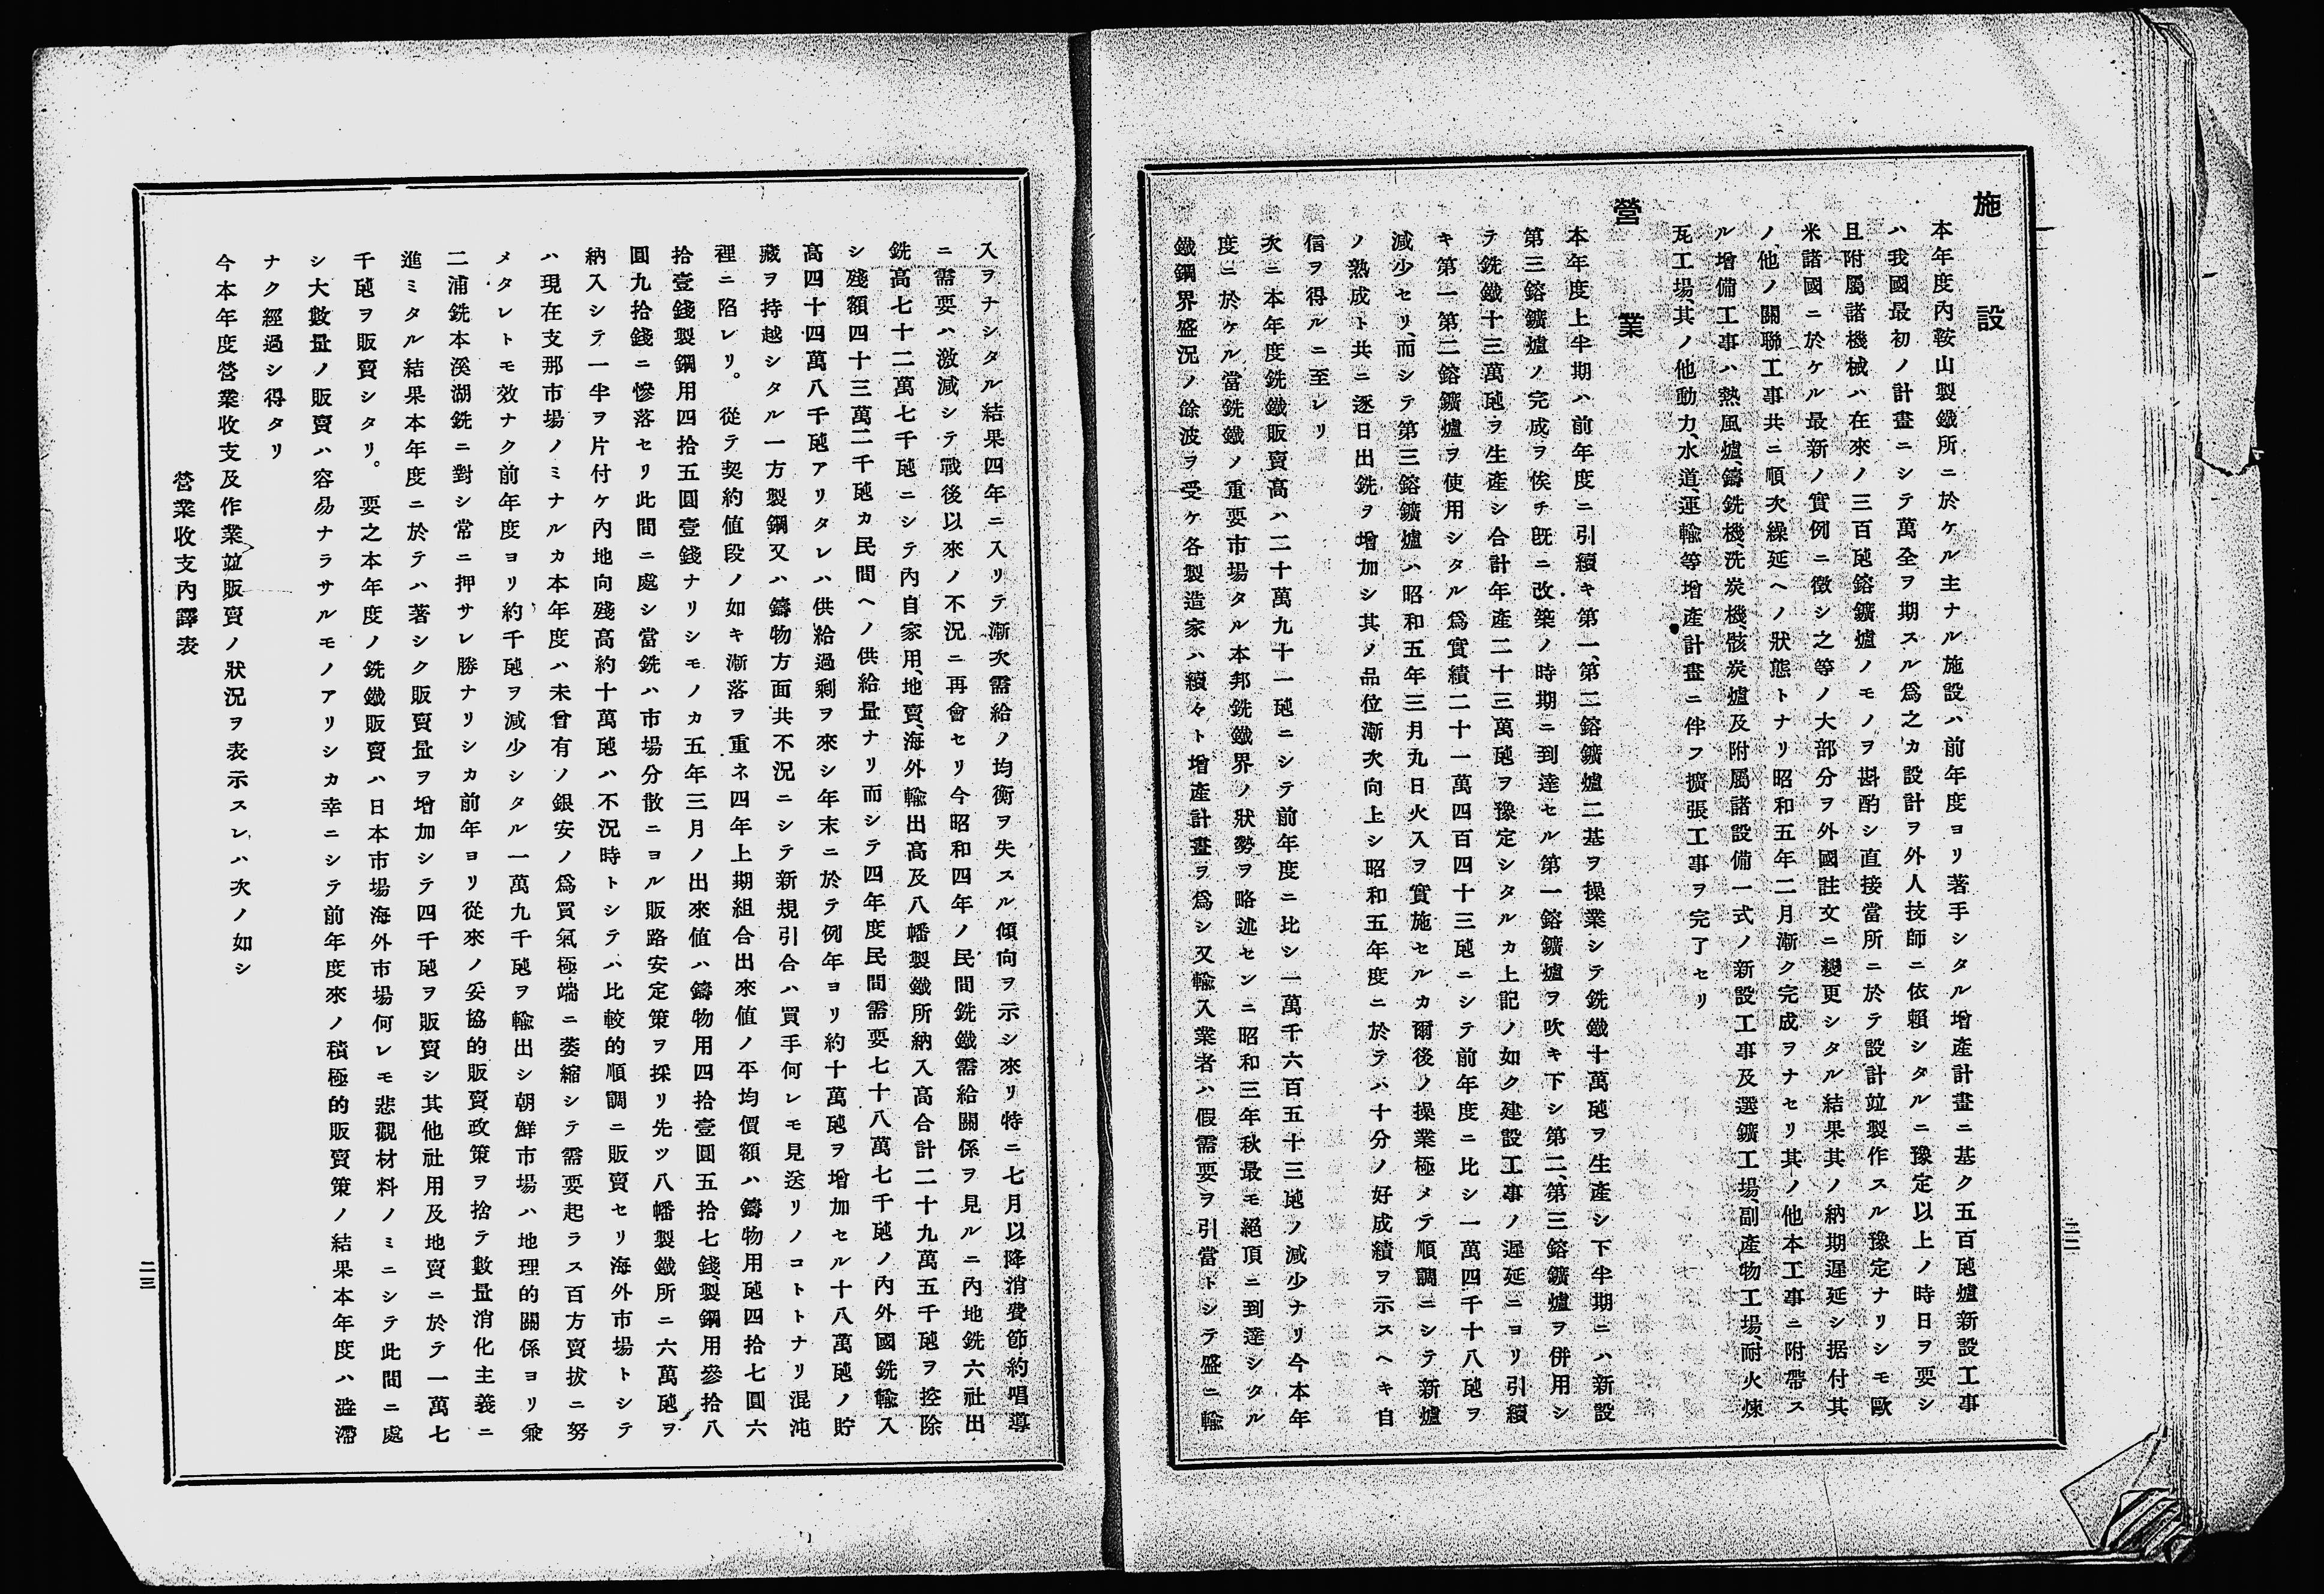 施設
本年度內鞍山製鐵所ニ於ケル主ナル施設ハ前年度ヨリ著手シタル增產計畫ニ基ク五百瓲爐新設工事
ハ我國最初ノ計畫ニシテ萬全ヲ期スル爲之カ設計ヲ外人技師ニ依賴シタルニ豫定以上ノ時日ヲ要シ
且附屬諸機械ハ在來ノ三百瓲鎔鑛爐ノモノヲ斟酌シ直接當所ニ於テ設計竝製作スル豫定ナリシモ歐
米諸國ニ於ケル最新ノ實例ニ徵シ之等ノ大部分ヲ外國註文ニ變更シタル結果其ノ納期遲延シ据付其
ノ他ノ關聯工事共ニ順次繰延ヘノ狀態トナリ昭和五年二月漸ク完成ヲナセリ其ノ他本工事ニ附帶ス
ル增備工事ハ熱風爐、鑄銑機、洗炭機、骸炭爐及附屬諸設備一式ノ新設工事及選鑛工場、副產物工場、耐火煉
瓦工場、其ノ他動力、水道、運輸等增產計畫ニ伴フ擴張工事ヲ完了セリ
營業
本年度上半期ハ前年度ニ引續キ第一、第二鎔鑛爐二基ヲ操業シテ銑鐵十萬瓲ヲ生產シ下半期ニハ新設
第三鎔鑛爐ノ完成ヲ俟チ旣ニ改築ノ時期ニ到達セル第一鎔鑛爐ヲ吹キ下シ第二、第三鎔鑛爐ヲ併用シ
テ銑鐵十三萬瓲ヲ生產シ合計年產二十三萬瓲ヲ豫定シタルカ上記ノ如ク建設工事ノ遲延ニヨリ引續
キ第一第二鎔鑛爐ヲ使用シタル爲實績二十一萬四百四十三瓲ニシテ前年度ニ比シ一萬四千十八瓲ヲ
減少セリ、而シテ第三鎔鑛爐ハ昭和五年三月九日火入ヲ實施セルカ爾後ノ操業極メテ順調ニシテ新爐
ノ熟成ト共ニ逐日出銑ヲ增加シ其ノ品位漸次向上シ昭和五年度ニ於テハ十分ノ好成績ヲ示スヘキ自
信ヲ得ルニ至レリ
次ニ本年度銑鐵販賣高ハ二十萬九千一瓲ニシテ前年度ニ比シ一萬千六百五十三瓲ノ減少ナリ今本年
度ニ於ケル當銑鐵ノ重要市場タル本邦銑鐵界ノ狀勢ヲ略述センニ昭和三年秋最モ絕頂ニ到達シタル
鐵鋼界盛況ノ餘波ヲ受ケ各製造家ハ續々ト增產計畫ヲ爲シ又輸入業者ハ假需要ヲ引當トシテ盛ニ輸
二二
入ヲナシタル結果四年ニ入リテ漸次需給ノ均衡ヲ失スル傾向ヲ示シ來リ特ニ七月以降消費節約唱導
ニ需要ハ激減シテ戰後以來ノ不況ニ再會セリ今昭和四年ノ民間銑鐵需給關係ヲ見ルニ內地銑六社出
銑高七十二萬七千瓲ニシテ內自家用、地賣、海外輸出高及八幡製鐵所納入高合計二十九萬五千瓲ヲ控除
シ殘額四十三萬二千瓲カ民間ヘノ供給量ナリ而シテ四年度民間需要七十八萬七千瓲ノ內外國銑輸入
高四十四萬八千瓲アリタレハ供給過剩ヲ來シ年末ニ於テ例年ヨリ約十萬瓲ヲ增加セル十八萬瓲ノ貯
藏ヲ持越シタル一方製鋼又ハ鑄物方面共不況ニシテ新規引合ハ買手何レモ見送リノコトトナリ混沌
裡ニ陷レリ。從テ契約値段ノ如キ漸落ヲ重ネ四年上期組合出來値ノ平均價額ハ鑄物用瓲四拾七圓六
拾壹錢製鋼用四拾五圓壹錢ナリシモノカ五年三月ノ出來値ハ鑄物用四拾壹圓五拾七錢、製鋼用參拾八
圓九拾錢ニ慘落セリ此間ニ處シ當銑ハ市場分散ニヨル販路安定策ヲ採リ先ツ八幡製鐵所ニ六萬瓲ヲ
納入シテ一半ヲ片付ケ內地向殘高約十萬瓲ハ不況時トシテハ比較的順調ニ販賣セリ海外市場トシテ
ハ現在支那市場ノミナルカ本年度ハ未曾有ノ銀安ノ爲買氣極端ニ萎縮シテ需要起ラス百方賣拔ニ努
メタレトモ效ナク前年度ヨリ約千瓲ヲ減少シタル一萬九千瓲ヲ輸出シ朝鮮市場ハ地理的關係ヨリ兼
二浦銑本溪湖銑ニ對シ常ニ押サレ勝ナリシカ前年ヨリ從來ノ妥協的販賣政策ヲ捨テ數量消化主義ニ
進ミタル結果本年度ニ於テハ著シク販賣量ヲ增加シテ四千瓲ヲ販賣シ其他社用及地賣ニ於テ一萬七
千瓲ヲ販賣シタリ。要之本年度ノ銑鐵販賣ハ日本市場海外市場何レモ悲觀材料ノミニシテ此間ニ處
シ大數量ノ販賣ハ容易ナラサルモノアリシカ幸ニシテ前年度來ノ積極的販賣策ノ結果本年度ハ澁滯
ナク經過シ得タリ
今本年度營業收支及作業竝販賣ノ狀況ヲ表示スレハ次ノ如シ
營業收支內譯表
二三